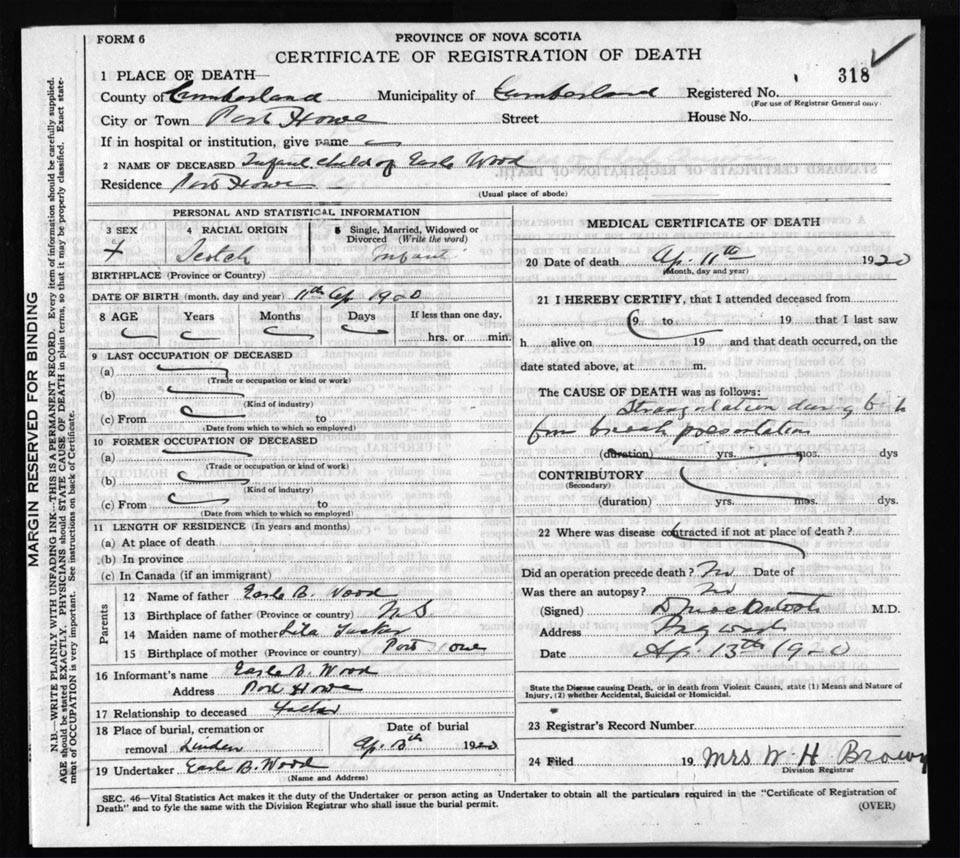 FORM 6
PROVINCE OF NOVA SCOTIA
CERTIFICATE OF REGISTRATION OF DEATH
318
1 PLACE OF DEATH—
County of Cumberland Municipality of Cumberland Registered No.
(For use of Registrar General only)
City or Town Port Howe Street House No.
If in hospital or institution, give name
2 NAME OF DECEASED Infant child of Earle Wood
Residence Port Howe
(Usual place of abode)
PERSONAL AND STATISTICAL INFORMATION
3 SEX 4 RACIAL ORIGIN 5 Single, Married, Widowed or Divorced (Write the word)
F Scotch Infant
BIRTHPLACE (Province or Country)
DATE OF BIRTH (month, day and year) 11th Ap 1920
8 AGE Years Months Days If less than one day,
hrs. or min.
9 LAST OCCUPATION OF DECEASED
(a)
(Trade or occupation or kind or work)
(b)
(Kind of industry)
(c) From to
(Date from which to which so employed)
10 FORMER OCCUPATION OF DECEASED
(a)
(Trade or occupation or kind or work)
(b)
(Kind of industry)
(c) From to
(Date from which to which so employed)
11 LENGTH OF RESIDENCE (In years and months)
(a) At place of death
(b) In province
(c) In Canada (if an immigrant)
Parents
12 Name of father Earle B. Wood
13 Birthplace of father (Province or country) N S
14 Maiden name of mother Lila Tucker
15 Birthplace of mother (Province or country) Port Howe
16 Informant's name Earle B. Wood
Address Port Howe
17 Relationship to deceased Father
18 Place of burial, cremation or removal Linden
Date of burial Ap. 1920
19 Undertaker Earle B. Wood
(Name and Address)
MEDICAL CERTIFICATE OF DEATH
20 Date of death Ap. 11th 1920
(Month, day and year)
21 I HEREBY CERTIFY, that I attended deceased from
19 to 19 that I last saw
h alive on 19 and that death occurred, on the
date stated above, at m.
The CAUSE OF DEATH was as follows:
Strangulation during birth
from breach presentation
(duration) yrs. mos. dys
CONTRIBUTORY
(Secondary)
(duration) yrs. mos. dys.
22 Where was disease contracted if not at place of death?
Did an operation precede death? No Date of
Was there an autopsy? No
(Signed) D Mackintosh M.D.
Address Pugwash
Date Ap. 13th 1920
State the Disease causing Death, or in death from Violent Causes, state (1) Means and Nature of
Injury, (2) whether Accidental, Suicidal or Homicidal.
23 Registrar's Record Number
24 Filed 19 Mrs W. H Brown
Division Registrar
SEC. 46—Vital Statistics Act makes it the duty of the Undertaker or person acting as Undertaker to obtain all the particulars required in the "Certificate of Registration of
Death" and to fyle the same with the Division Registrar who shall issue the burial permit.
(OVER)
MARGIN RESERVED FOR BINDING
N.B.—WRITE PLAINLY WITH UNFADING INK—THIS IS A PERMANENT RECORD. Every item of information should be carefully supplied.
AGE should be stated EXACTLY. PHYSICIANS should STATE CAUSE OF DEATH in plain terms, so that it may be properly classified. Exact state-
ment of OCCUPATION is very important. See instructions on back of Certificate.